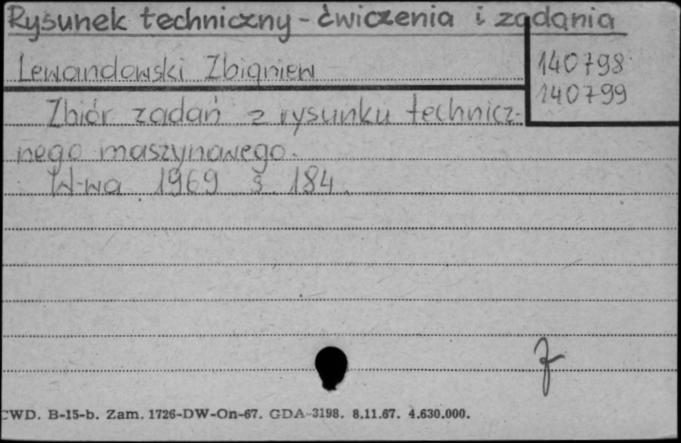 Rysunek techniczny - ćwiczenia i zadania
Lewandowski Zbigniew
140798
140799
Zbiór zadań z rysunku technicz-
nego maszynowego.
W-wa 1969 s. 184.
CWD. B-15-b. Zam. 1726-DW-On-67. GDA-3198. 8.11.67. 4.630.000.